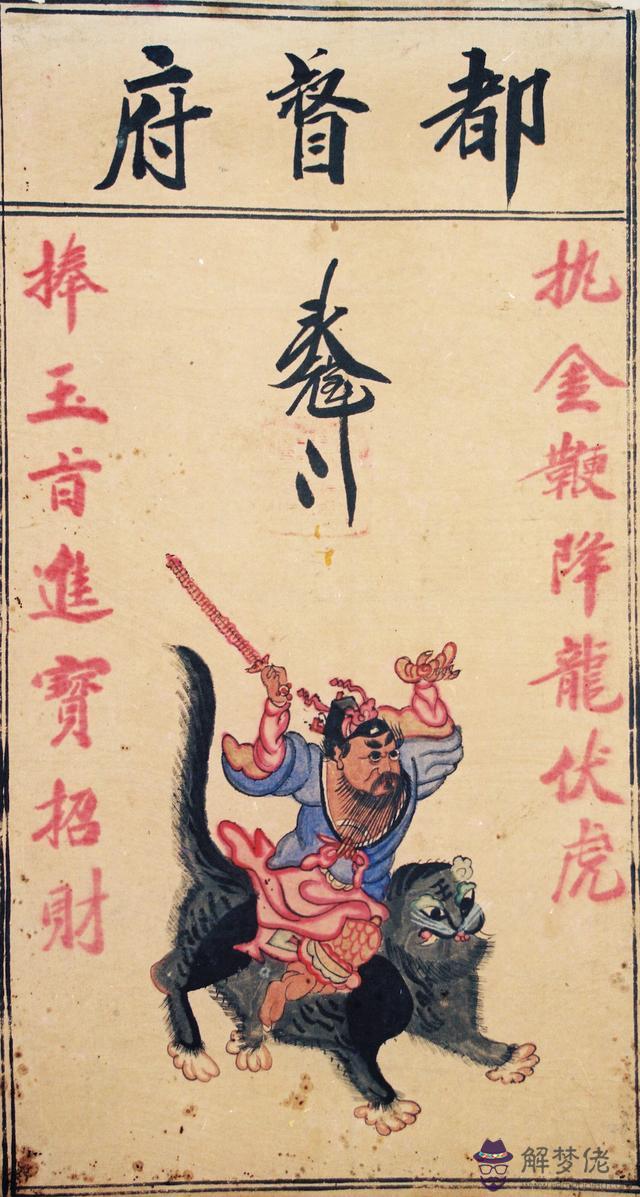 都督府
执金鞭降龍伏虎
捧玉旨進寶招財
王
解梦佬